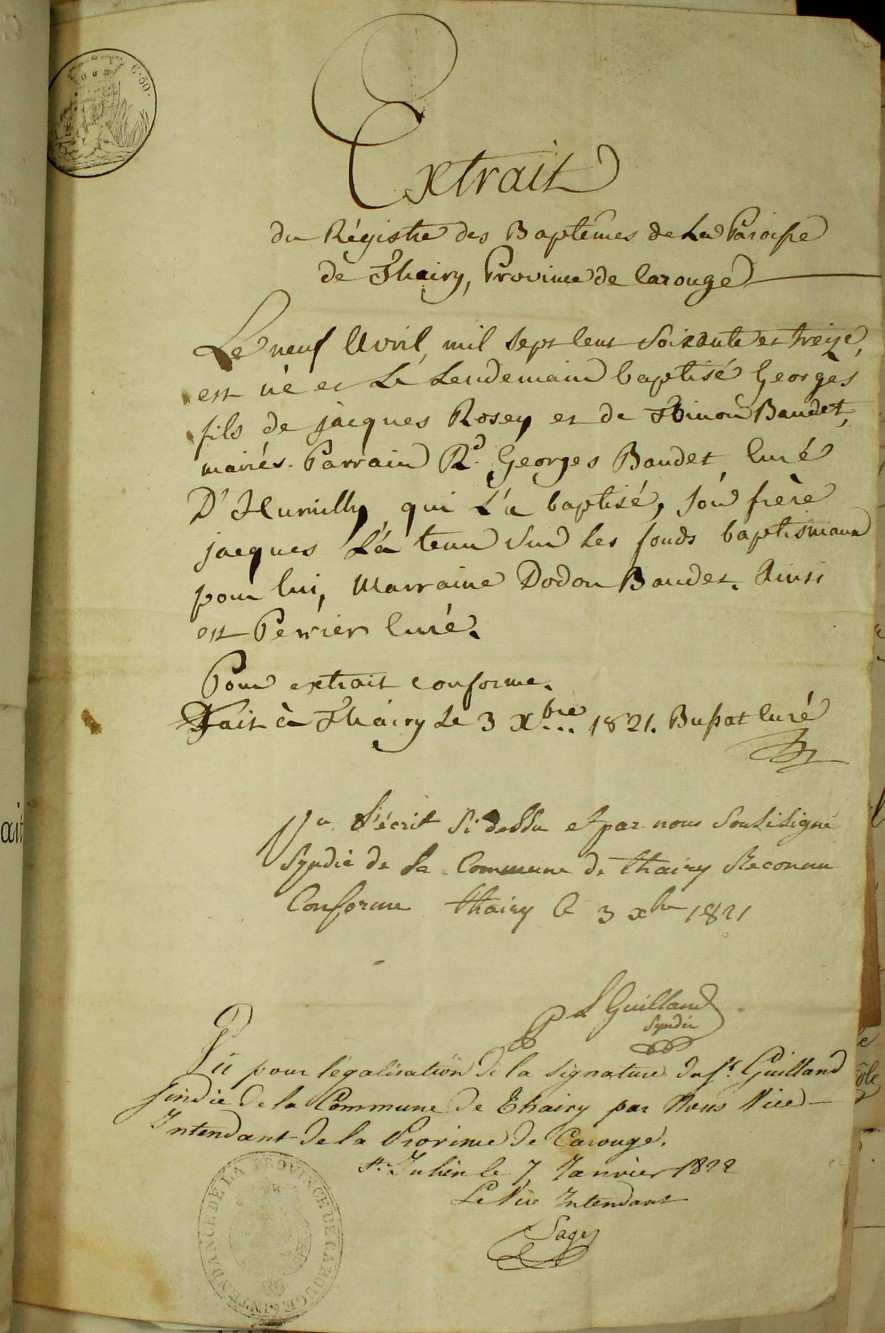 C. 60.
Extrait
du Régistre des Baptêmes de La Paroisse
de Thairy, Province de Carouge
Le neuf Avril, mil Sept Cent Soixante et treize,
est né et Le Lendemain baptisé Georges
fils de jacques Rosey et de Ninon Baudet,
mariés. Parrain Rd. Georges Baudet, Curé
D'Humilly qui L'a baptisé, Son frère
jacques L'a tenu Sur Les fonds baptismaux
pour lui, Marraine Dodon Baudet. Ainsi
est Perrier Curé.
Pour extrait conforme.
Fait à Thairy Le 3 Xbre 1821. Bussat Curé
Vu l'écrit Si dessu et par nous Soussigné
Syndic de La Commune de thairy Reconnu
Conforme thairy le 3 xbre 1821
Guilland
Syndic
Vu pour légalisation de la signature du Sr. Guilland
Sindic de la Commune de Thairy par Nous Vice
Intendant de la Province de Carouge.
St. Julien le 7 Janvier 1822
Le Vice Intendant
Sage
INTENDANCE DE LA PROVINCE DE CAROUGE